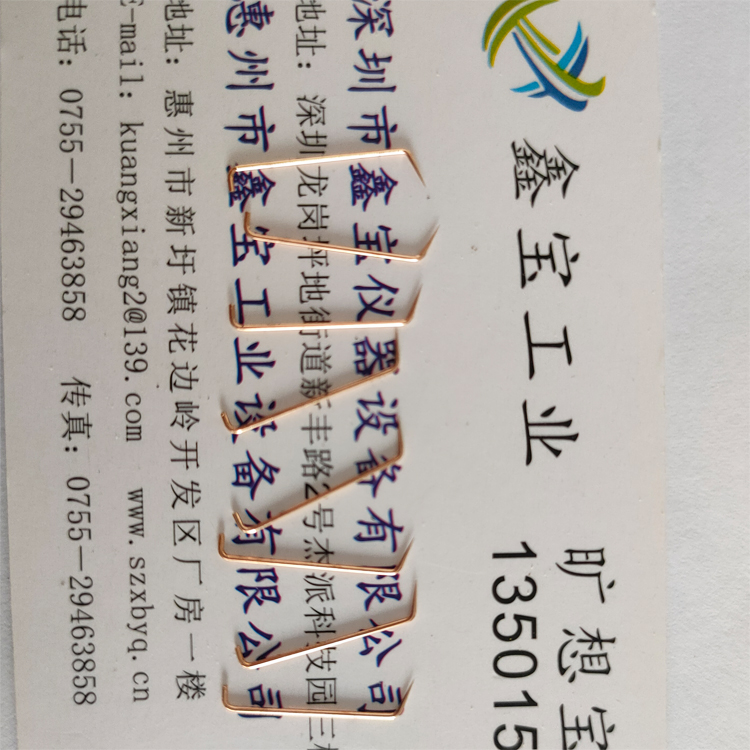 鑫宝工业
旷想宝
135015
深圳市鑫宝仪器设备有限公司
地址：深圳龙岗坪地街道新丰路2号杰派科技园三栋
惠州市鑫宝工业设备有限公司
地址：惠州市新圩镇花边岭开发区厂房一楼
E-mail：kuangxiang2@139.com www.szxbyq.cn
电话：0755－29463858 传真：0755－29463858